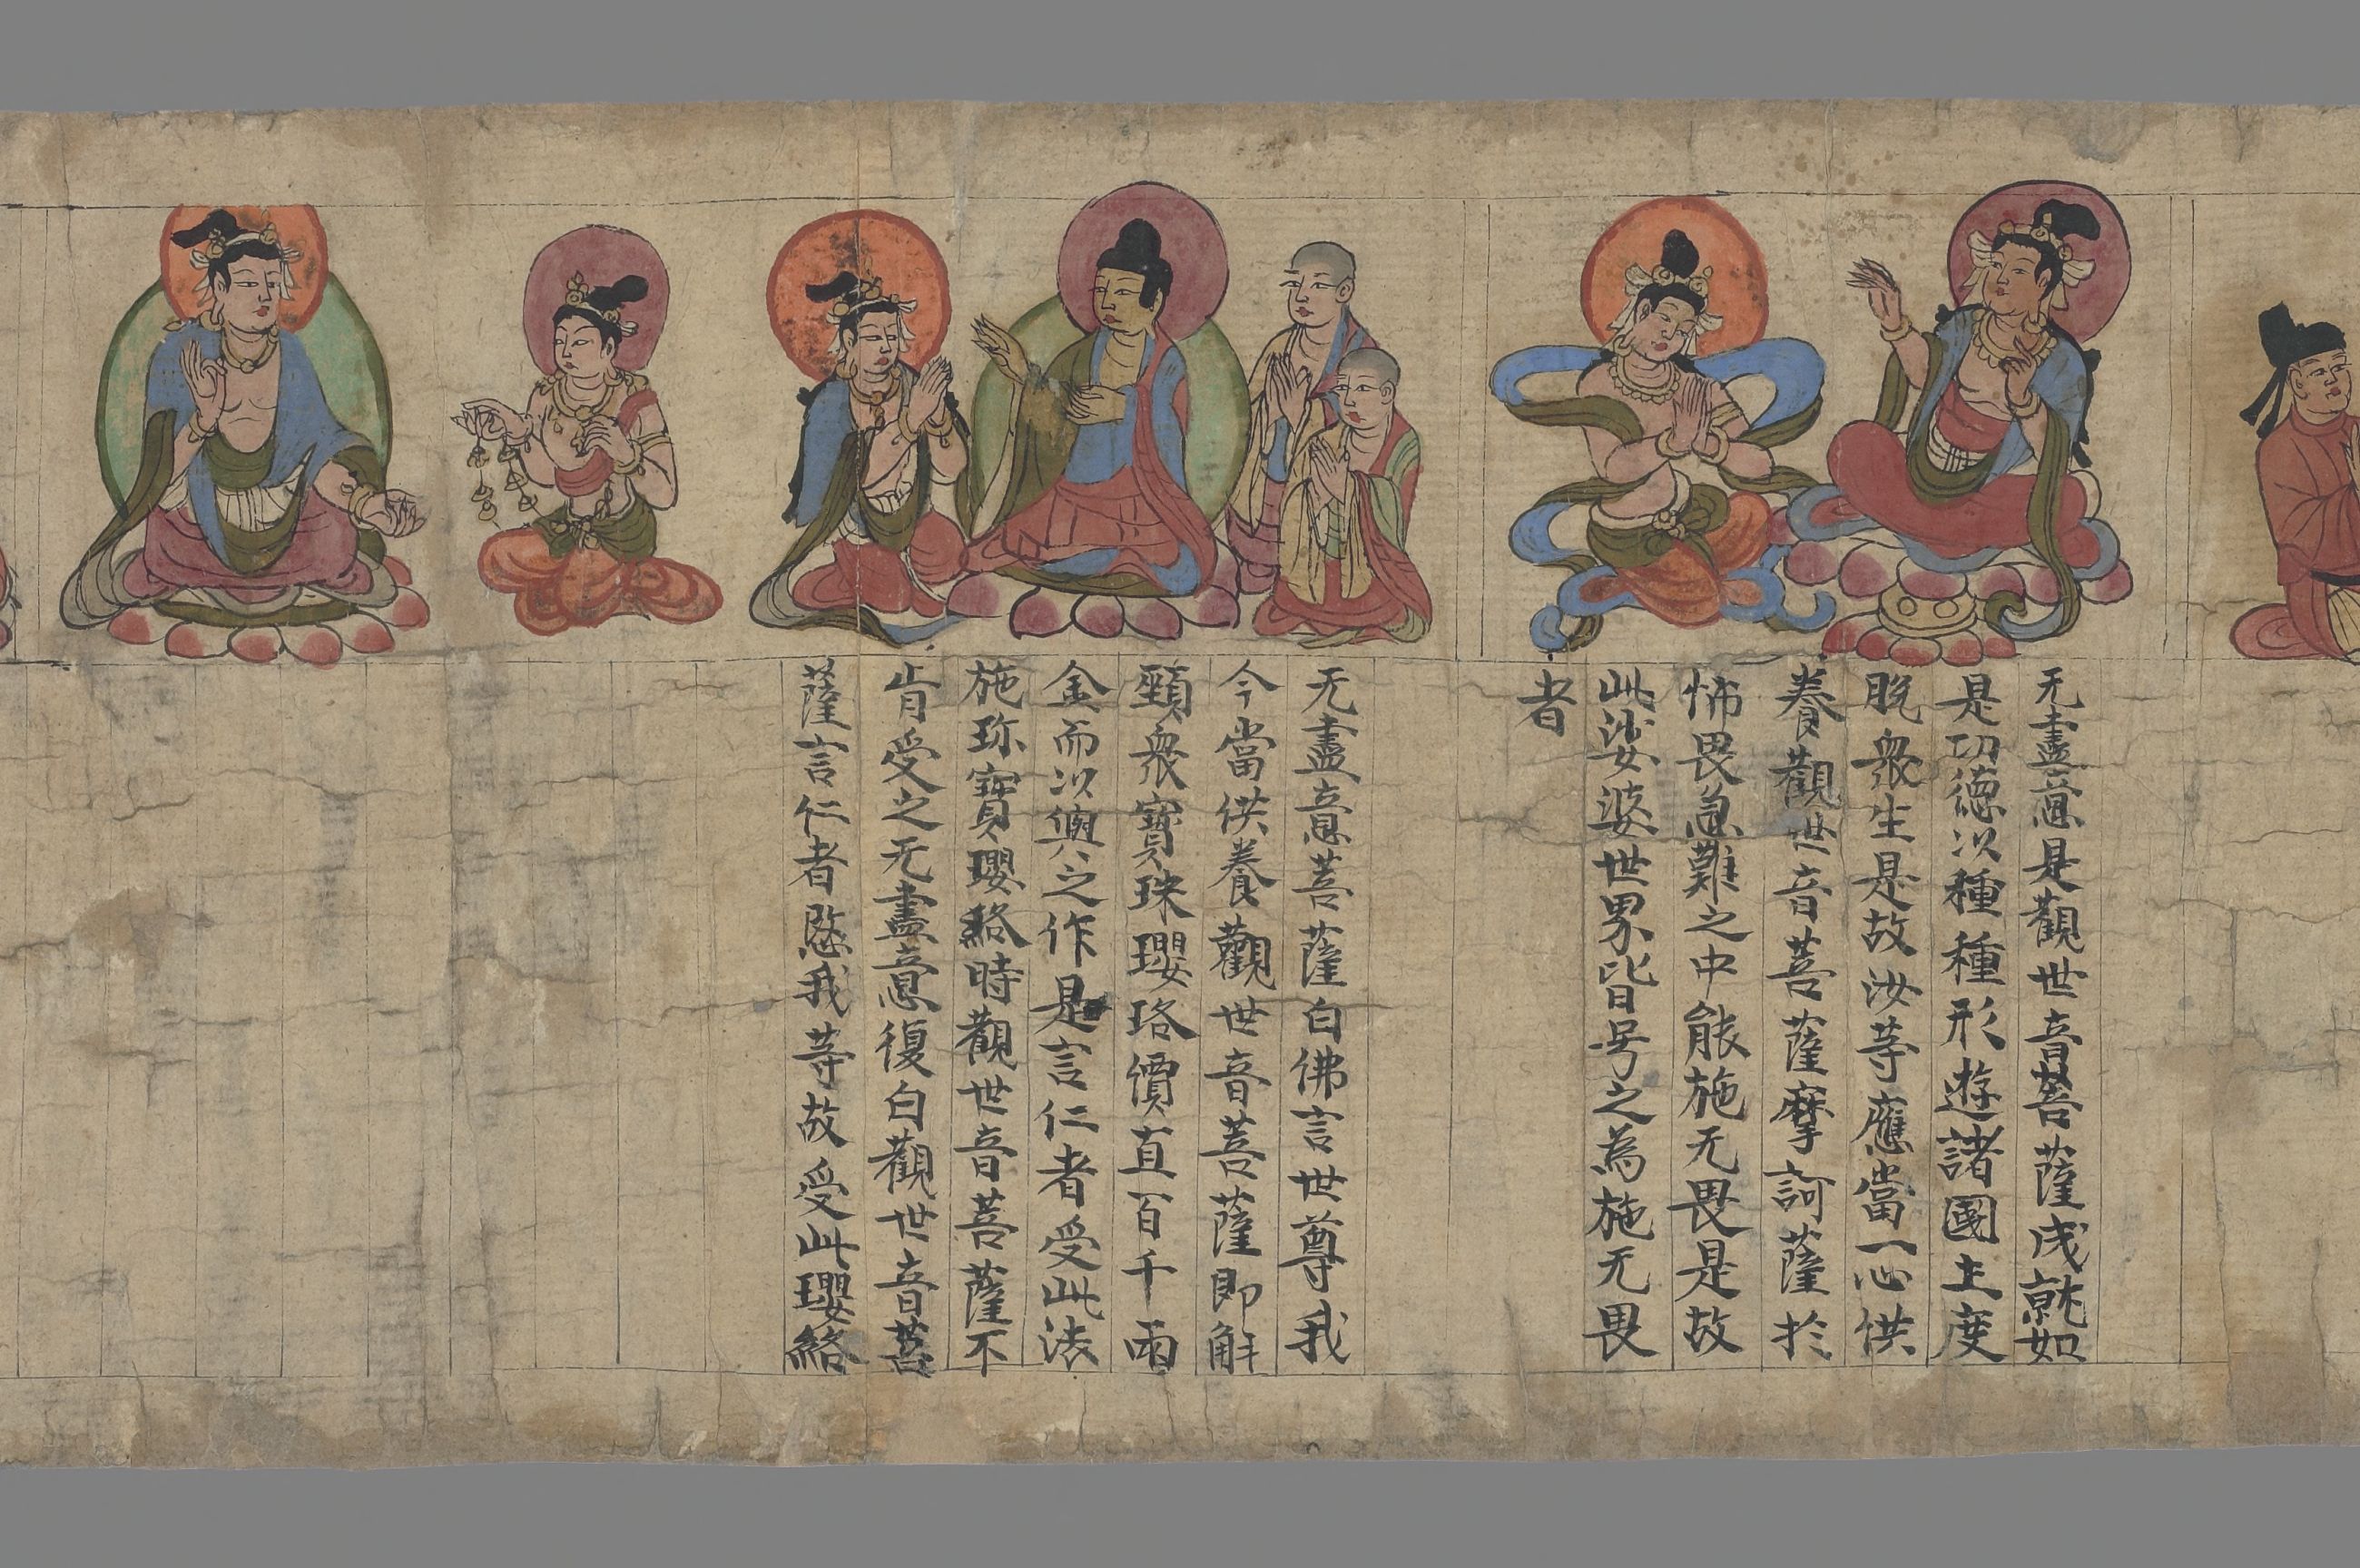 无盡意是觀世音菩薩成就如
是功德以種種形遊諸國土度
脫衆生是故汝等應當一心供
養觀世音菩薩摩訶薩於
怖畏急難之中能施无畏是故
此娑婆世界皆号之為施无畏
者
无盡意菩薩白佛言世尊我
今當供養觀世音菩薩即解
頸衆寶珠瓔珞價直百千兩
金而以與之作是言仁者受此法
施珎寶瓔絡時觀世音菩薩不
肯受之无盡意復白觀世音菩
薩言仁者愍我等故受此瓔絡